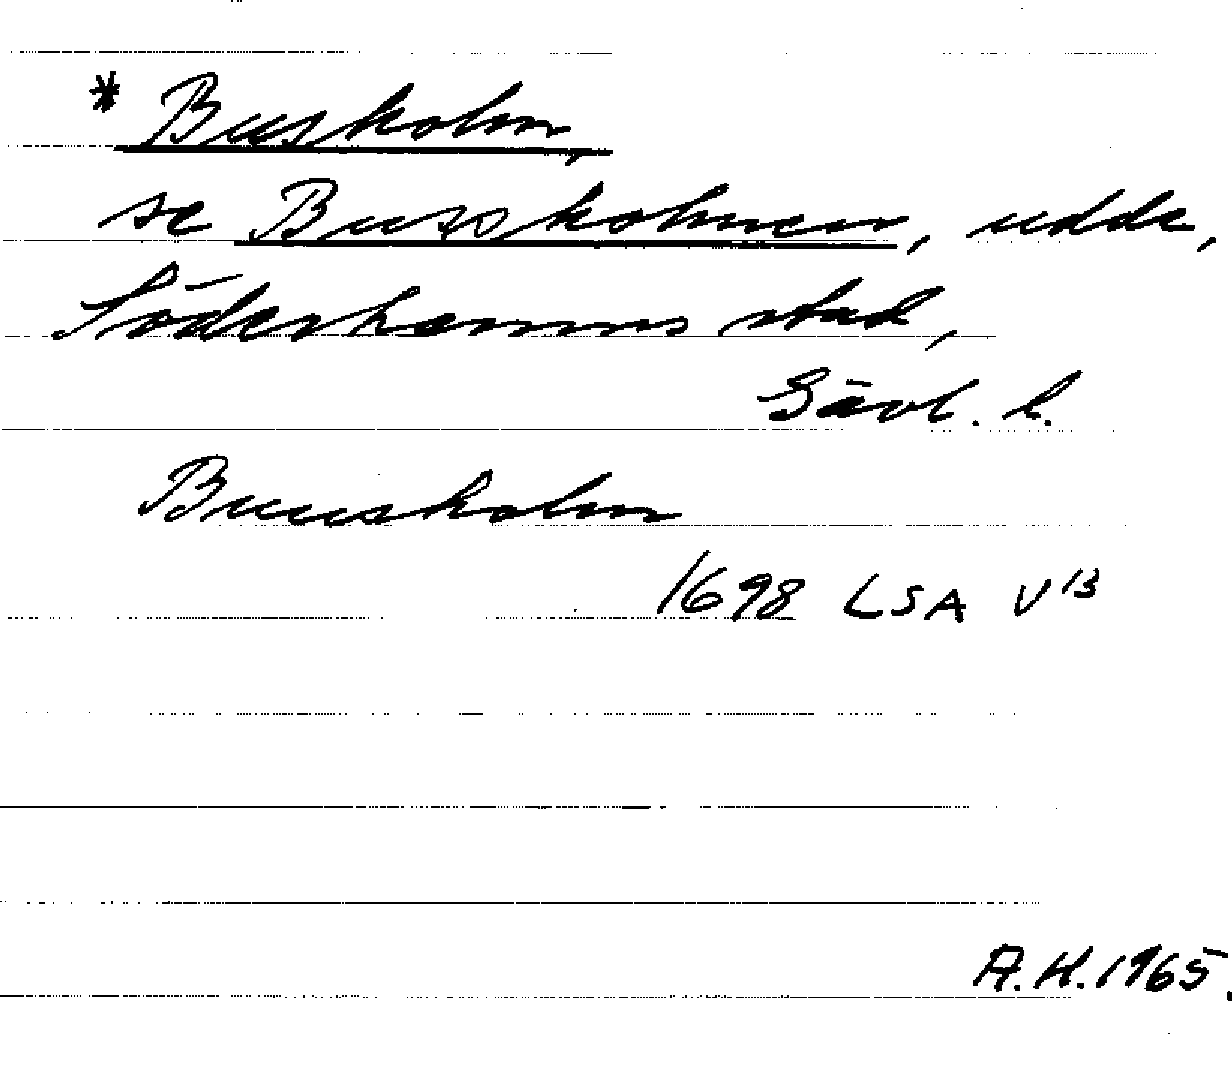 * Buskholm,
se Bussholmen, udde,
Söderhamns stad,
Gävl. l.
Buuskholm
1698 LSA V¹³
A.H. 1965.